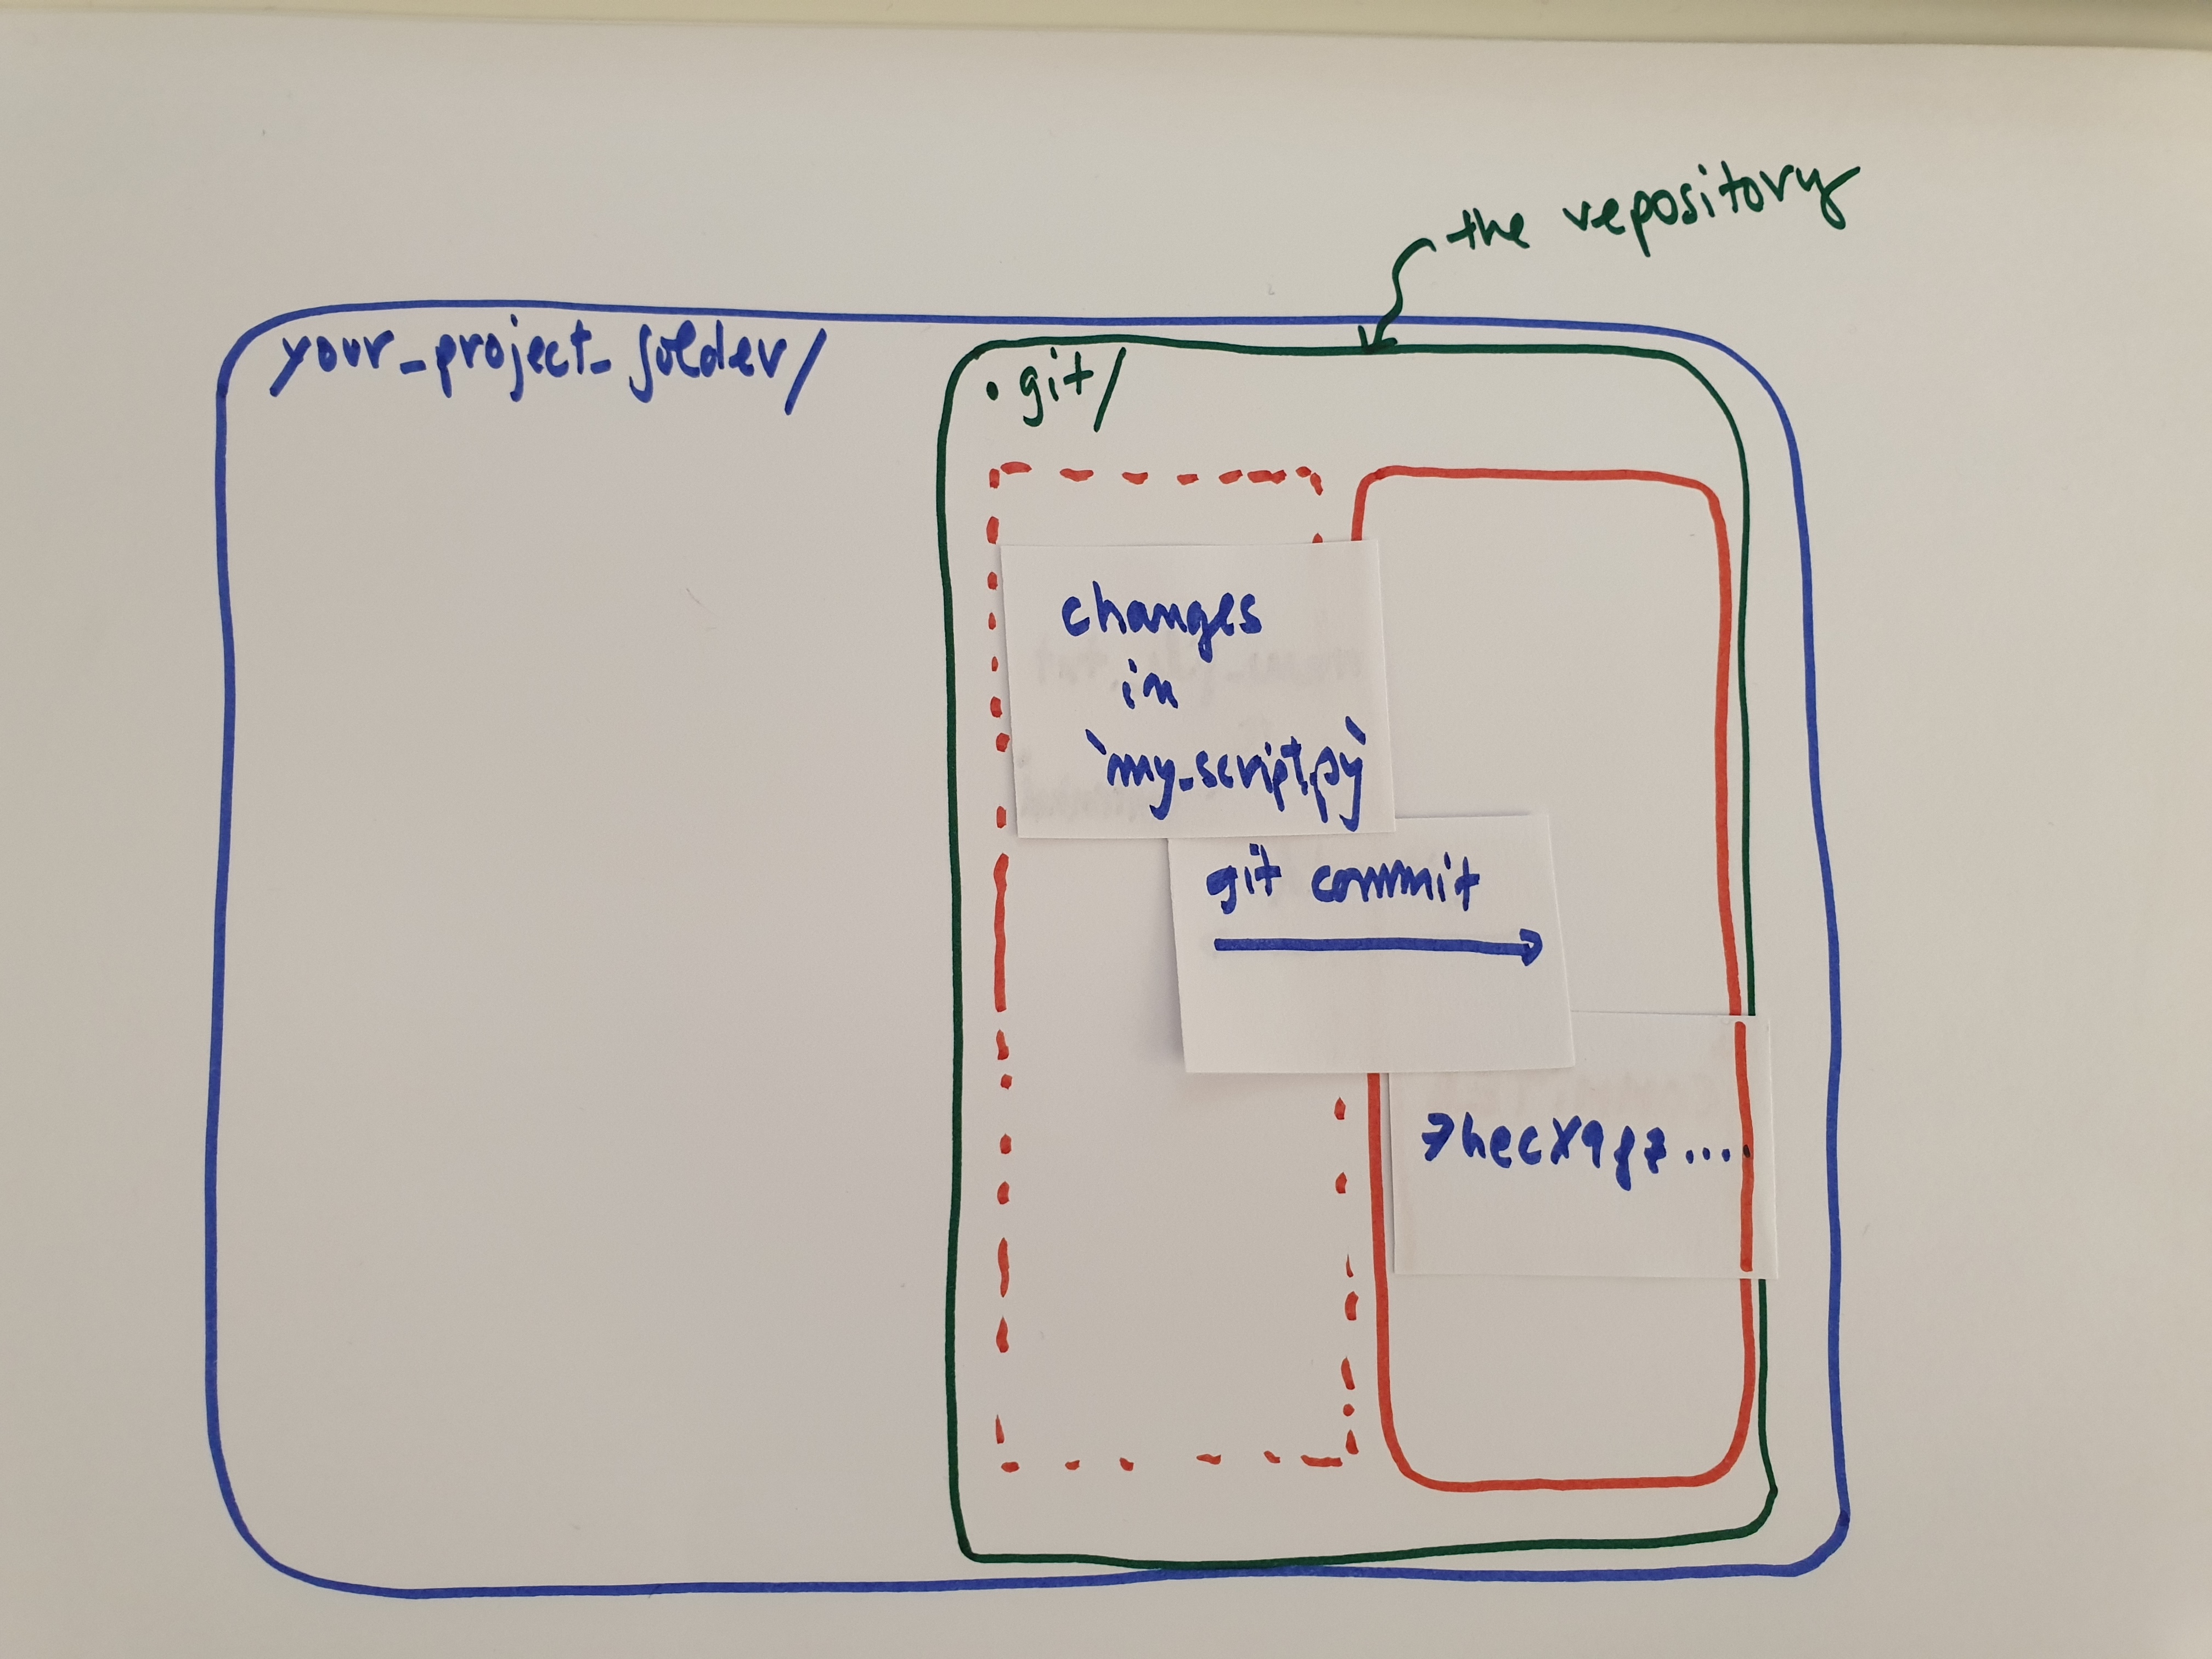 the repository
your_project_folder/
.git/
changes
in
`my_script.py`
git commit
7hecX9gz....